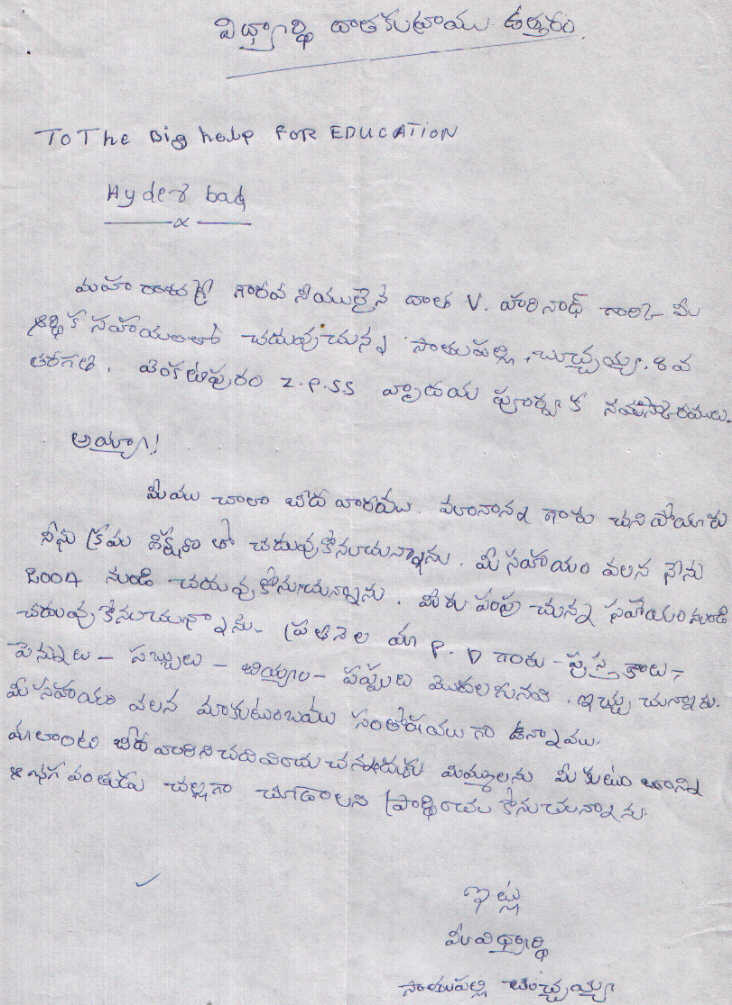 విద్యార్థి దాతకు వ్రాయు ఉత్తరం.
TO The Big help FOR EDUCATION
Hyderbad
x
మహారాజశ్రీ గౌరవనీయులైన దాత V. హరినాథ్ గారికి మీ
ఆర్థిక సహాయంతో చదువుచున్న సాతుపల్లి. బుచ్చయ్య. 8వ
తరగతి. వెంకటాపురం Z.P.SS హృదయ పూర్వక నమస్కారములు.
అయ్యా!
మేము చాలా బీద వారము. మా నాన్న గారు చనిపోయారు
నేను క్రమ శిక్షణ తో చదువుకొనుచున్నాను. మీ సహాయం వలన నేను
2004 నుండి చదువుకోనుచున్నాను. మీరు పంపుచున్న సహాయం నుండి
చదువుకోనుచున్నాను. ప్రతినెల మా P.D గారు - పుస్తకాలు -
పెన్నులు - సబ్బులు - బియ్యం - పప్పులు మొదలగునవి. ఇచ్చుచున్నారు.
మీ సహాయం వలన మా కుటుంబము సంతోషముగా ఉన్నాము.
మాలాంటి బీద వారిని చదివించుచున్నందుకు మిమ్ములను మీ కుటుంబాన్ని
ఆ భగవంతుడు చల్లగా చూడాలని ప్రార్థించుకోనుచున్నాను.
ఇట్లు
మీ విధ్యార్థి
సాతుపల్లి బుచ్చయ్య